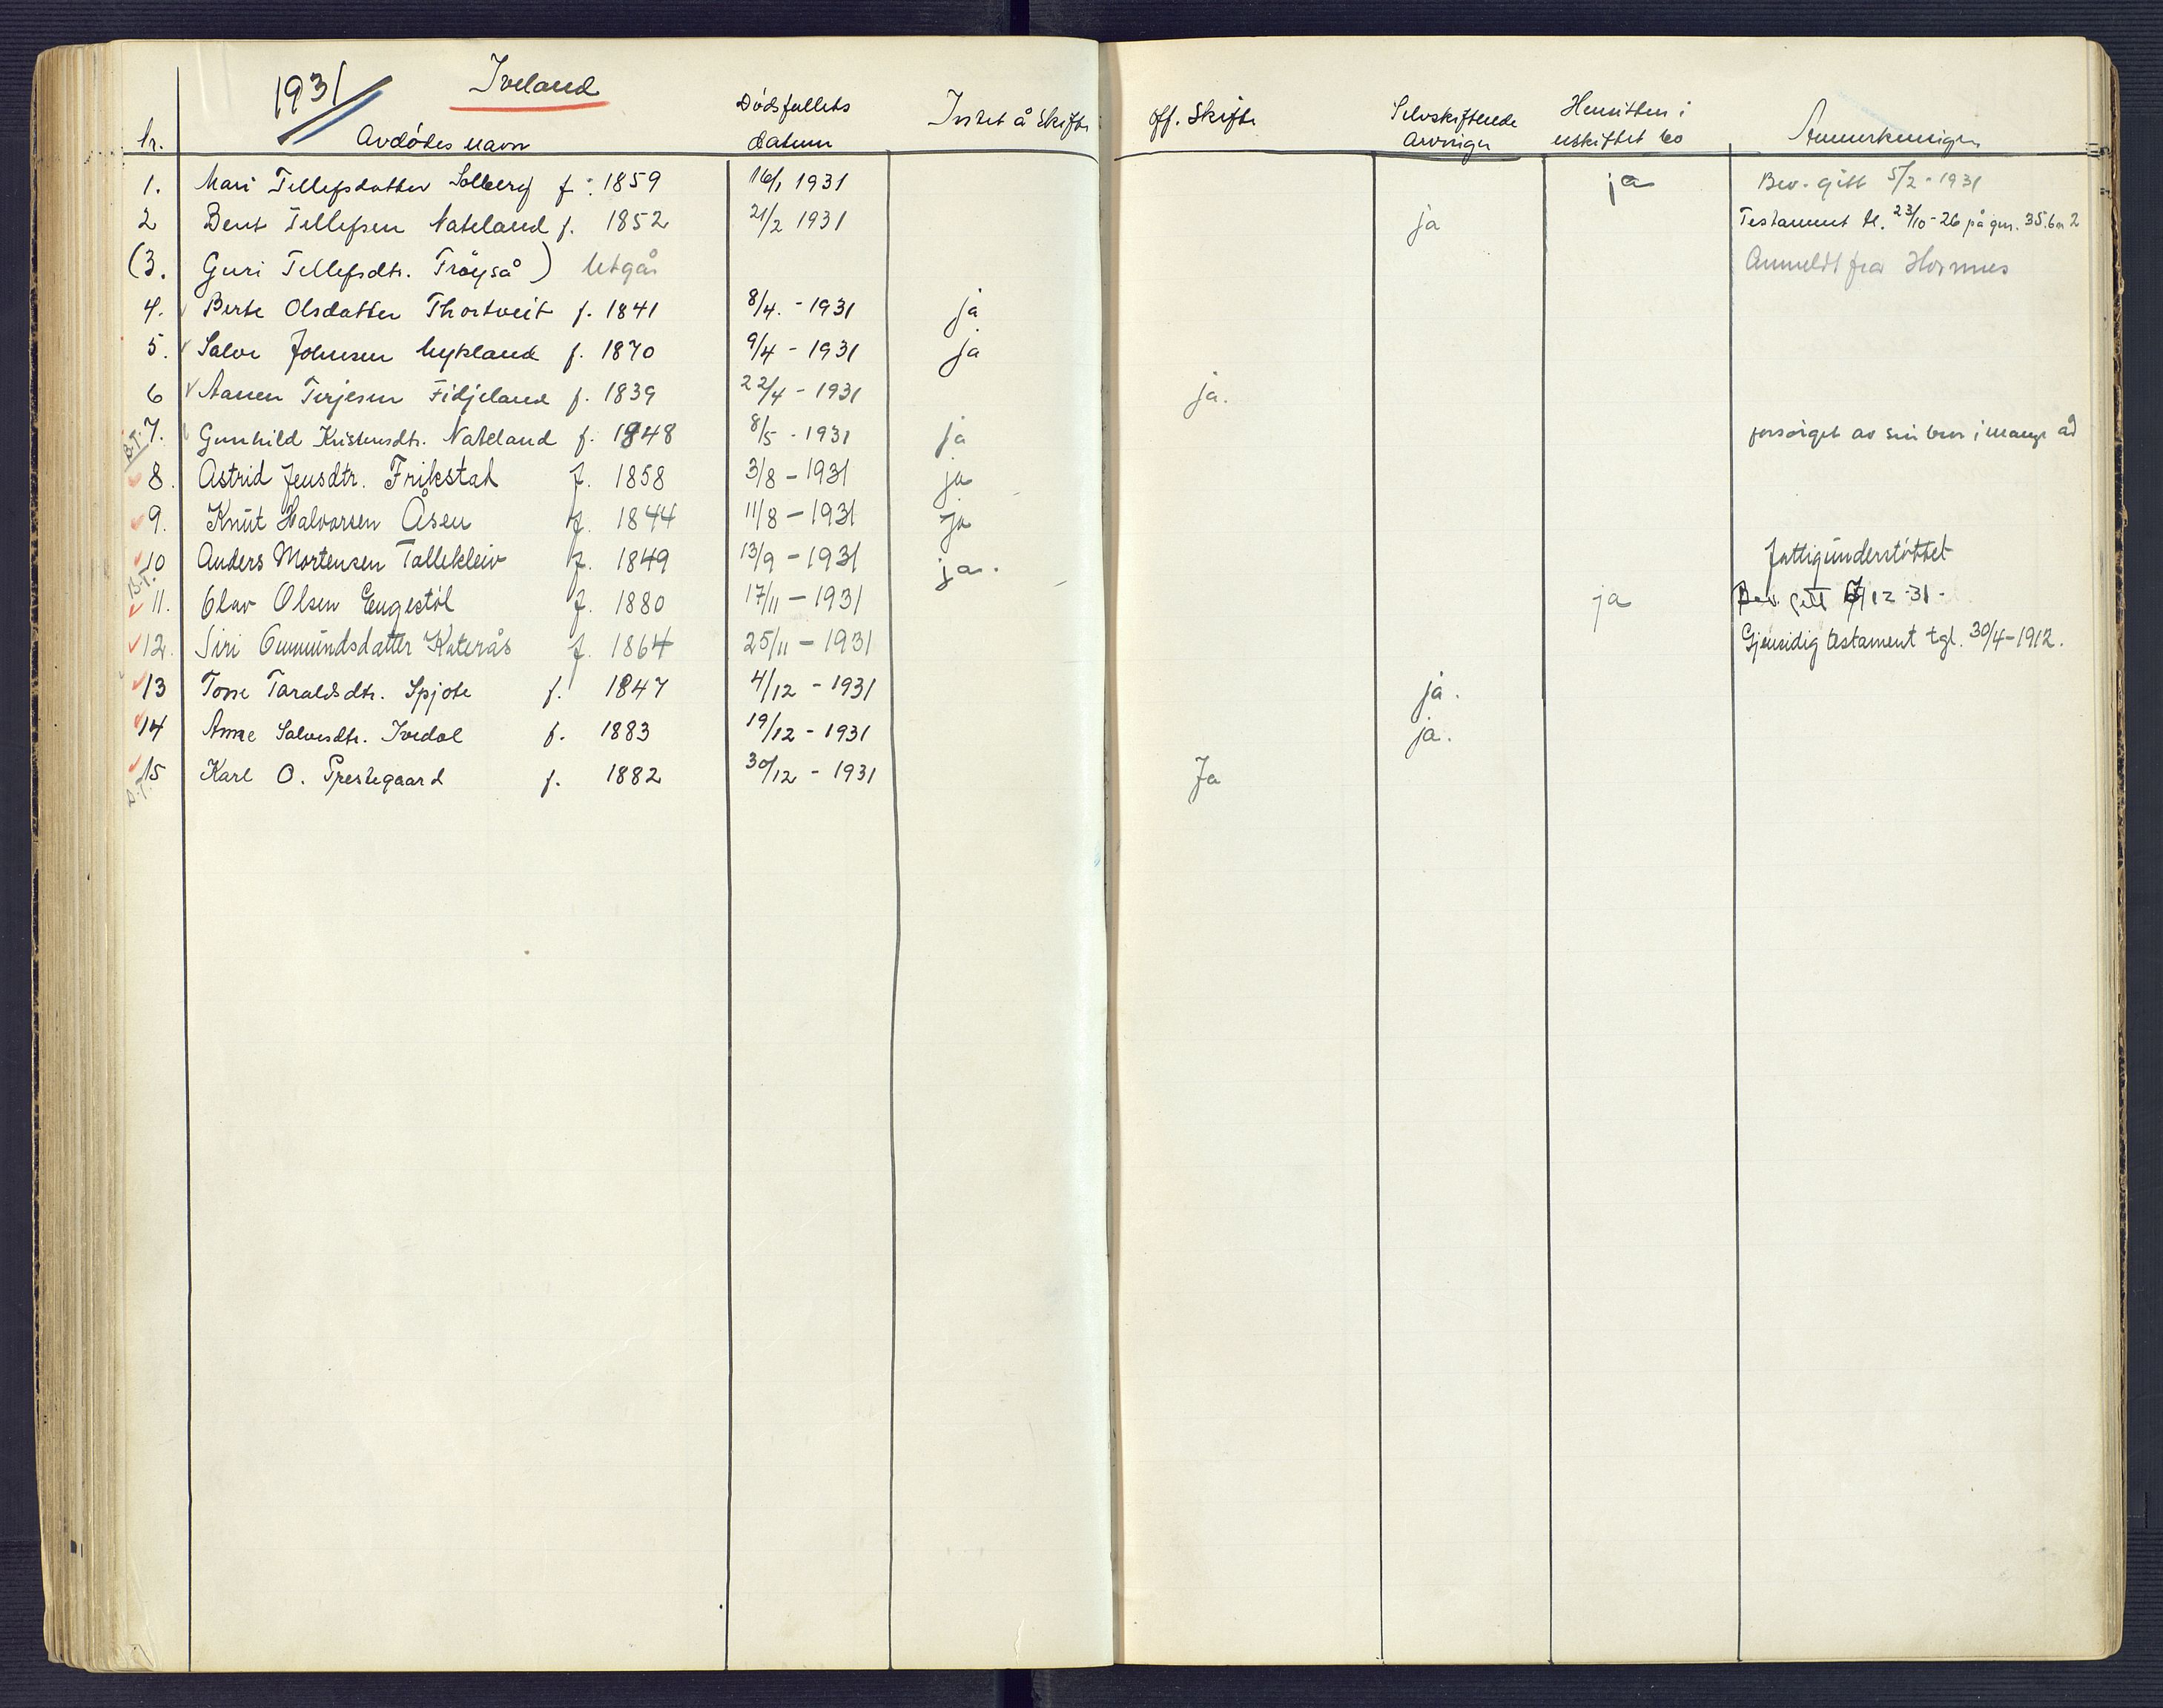 1931 Iveland
Nr. Avdødes navn Dødsfallets datum Intet å skifte Off. Skifte Selvskiftende Arvinger Hensitten i uskiftet bo Anmerkninger
1. Mari Tellefsdatter Solberg f. 1859 16/1 1931 ja Bev. gitt 5/2 - 1931
2 Bent Tellefsen Nateland f. 1852 21/2 1931 ja Testament tl. 23/10-26 på gnr. 35. bn 2
(3. Guri Tellefsdtr. Frøyså) Utgår Anmeldt fra Hornnes
4. Berte Olsdatter Thortveit f. 1841 8/4. - 1931 ja
5. Salve Johnsen Mykland f. 1870 9/4 - 1931 ja
6 Aanen Terjesen Fidjeland f. 1839 22/4 - 1931 ja.
B.T. 7. Gunhild Kristensdtr. Nateland f. 1848 8/5 - 1931 ja forsørget av sin bror i mange år
8. Astrid Jensdtr. Frikstad f. 1858 3/8 - 1931 ja
9. Knut Halvorsen Åsen f. 1844 11/8 - 1931 ja
10 Anders Mortensen Tallekleiv f. 1849 13/9 - 1931 ja. Fattigunderstøttet
B.T. 11. Olav Olsen Engestøl f. 1880 17/11 - 1931 ja Bev. gitt /12-31-
12. Siri Gunnundsdatter Katerås f. 1864 25/11 - 1931 Gjensidig testament tgl. 30/4-1912.
13 Tone Taraldsdtr. Spjote f. 1847 4/12 - 1931 ja.
14 Anne Salvesdtr. Ivedal f. 1883 19/12 - 1931 ja.
15 Karl O. Prestegaard f. 1882 30/12 - 1931 Ja